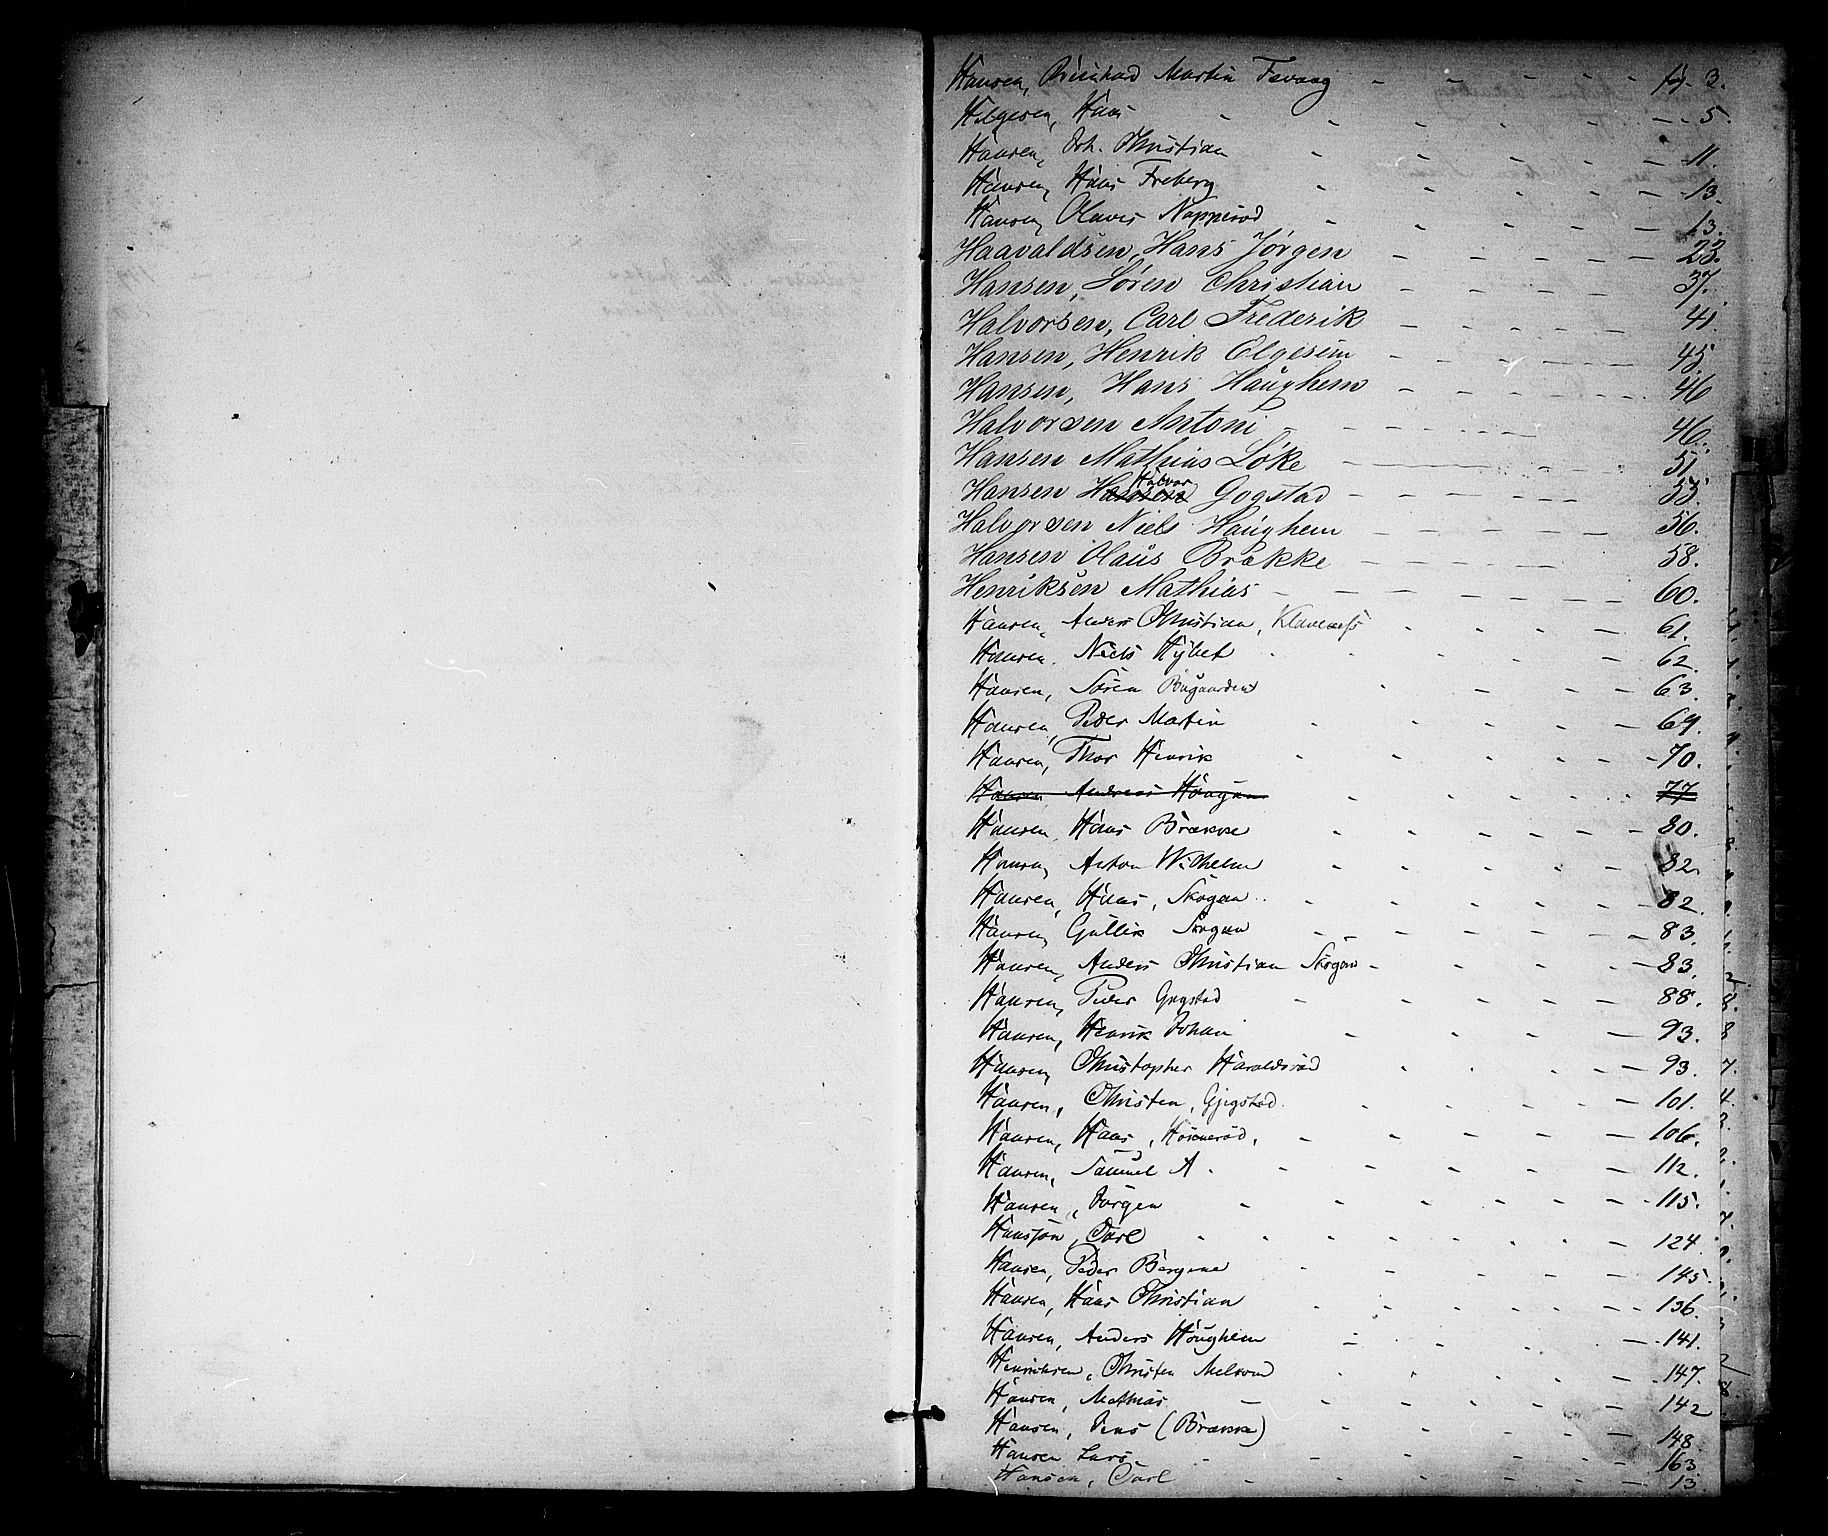 Hansen, Reinhard Martin Fevang - - - - - - fol. 3.
Helgesen, Hans - - - - - - 5.
Hansen, Joh. Christian - - - - - 11.
Hansen, Hans Freberg - - - - - 13.
Hansen, Olaves Nopperöd - - - - - 13.
Haavaldsen, Hans Jörgen - - - - - 23.
Hansen, Sören Christian - - - - - 37.
Halvorsen, Carl Frederik - - - - - 41.
Hansen, Henrik Elgesem - - - - - 45.
Hansen, Hans Haughem - - - - - 46
Halvorsen Antoni - - - - - 46.
Hansen Mathias Löke - - - - - 51.
Hansen Halvor Gogstad - - - - - 53.
Halvorsen Niels Haughem - - - - - 56.
Hansen Olaus Brekke - - - - - 58.
Henriksen Mathias - - - - - 60.
Hansen, Anders Christian, Klaveness - - - - 61.
Hansen, Niels Hybet - - - - - 62.
Hansen, Sören Bugaarden - - - - 63.
Hansen, Peder Martin - - - - - 69.
Hansen, Thor Henrik - - - - - 70.
Hansen Andreas Haugan - - - - - 77
Hansen, Hans Brække - - - - - 80.
Hansen, Anton Wilhelm - - - - - 82.
Hansen, Hans, Skogan - - - - - 82.
Hansen, Gullik Skogan - - - - - 83.
Hansen, Anders Christian Skogan - - - - 83.
Hansen, Peder Gogstad - - - - - 88.
Hansen, Henrik Johan - - - - - 93.
Hansen, Christopher Haraldsröd - - - - 93.
Hansen, Christen, Gjegstad - - - - - 101.
Hansen, Hans, - - - - - 106.
Hansen, Samuel A. - - - - - 112.
Hansen, Jörgen - - - - - 115.
Hansson, Carl - - - - - 124.
Hansen, Peder Bergene - - - - - 145.
Hansen, Hans Christian - - - - - 136.
Hansen, Anders Haughem - - - - - 141.
Henriksen, Christen - - - - - 147.
Hansen, Mathias - - - - - 142
Hansen, Jens (Brække) - - - - - 148
Hansen Lars - - - - - 163
Hansen, Carl - - - - - 13